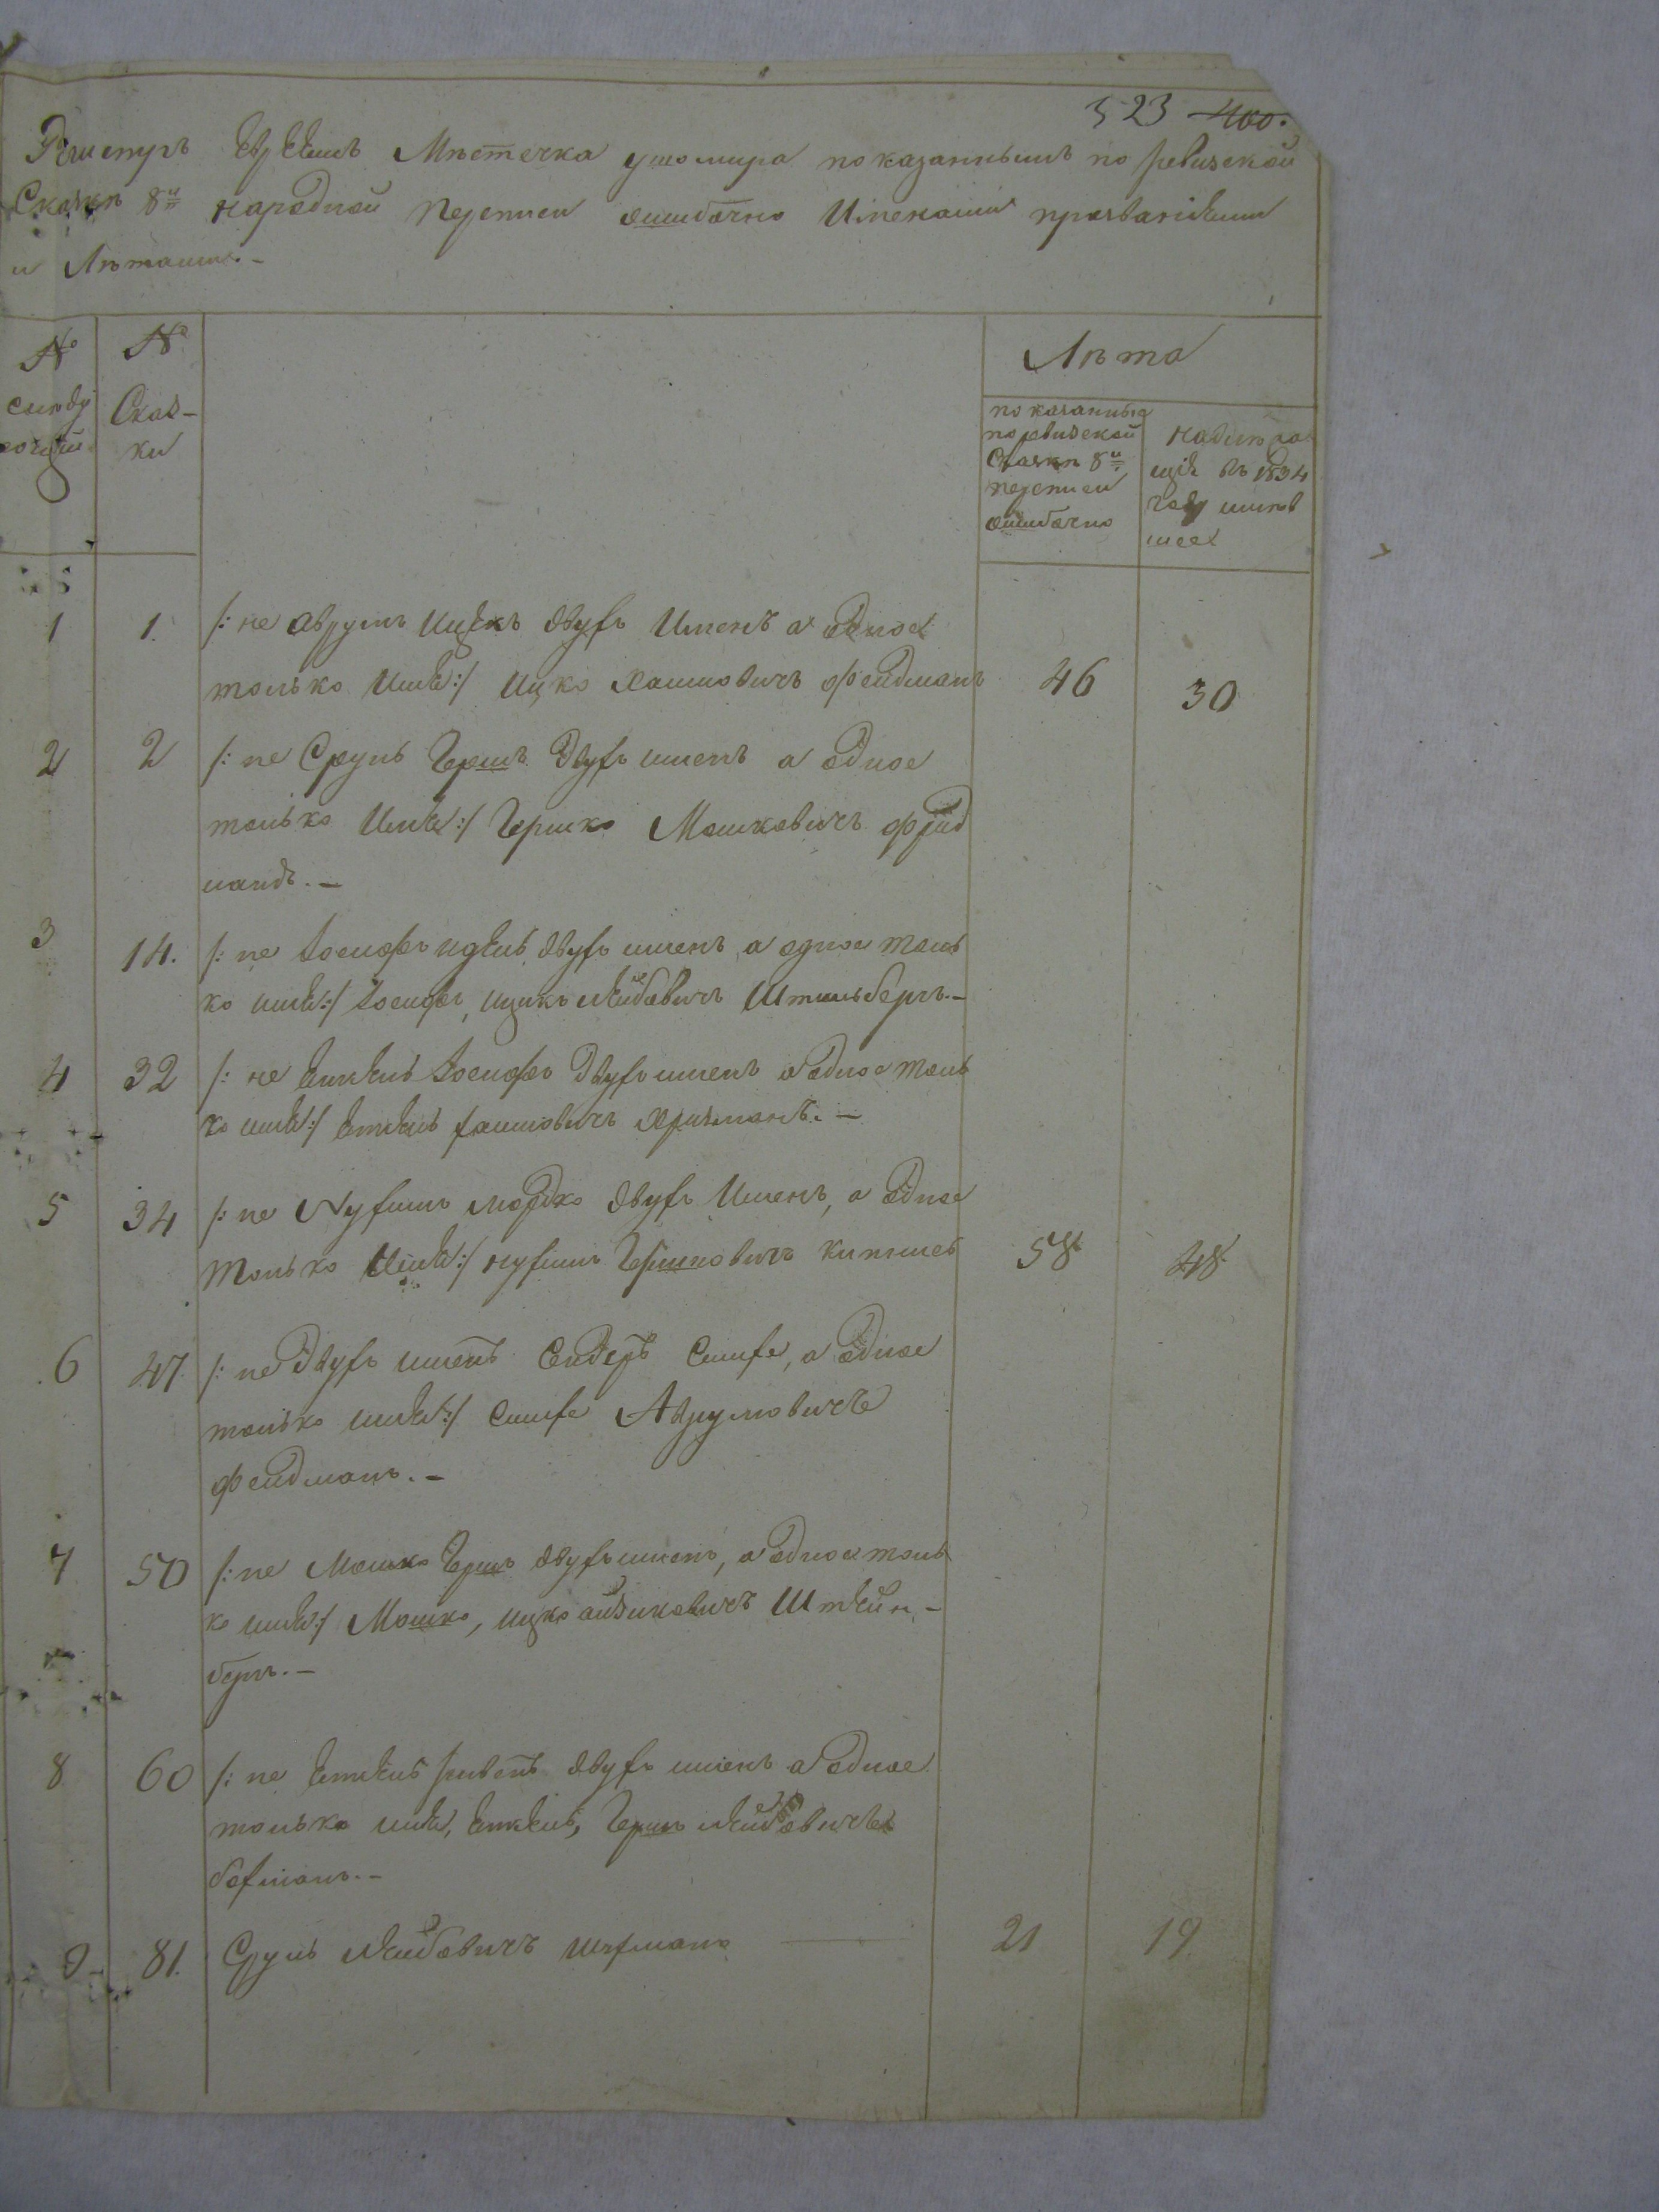 523 400.
Регистръ Евреямъ Мѣстечка Ушомира показаннымъ по ревизской
Сказкѣ 8й народной переписи ошибочно Именами прозваніями
и Лѣтами. -
№ слѣду
ющій
№ Сказ-
ки
Лѣта
показанныя
по ревизской
Сказкѣ 8й
переписи
ошибочно
въ 1834
году
1 1. /: не Аврумъ Ицекъ двухъ Именъ а одное
только Имя :/ Ицко Хаимовичъ Фейдманъ 46 30
2 2 /: не Сруль Гершъ двухъ именъ а одное
только Имя :/ Гершко Мошковичъ Фрид
манъ. -
3 14. /: не Іосифъ двухъ именъ, а одное толь
ко имя :/ Іосифъ, Ицикъ Лейбовичъ Штильбергъ. -
4 32 /: не Іосифъ двухъ именъ а одное толь
ко имя :/ Хаимовичъ. -
5 34 /: не Нухимъ Мордко двухъ Именъ, а одное
только Имя :/ Нухимъ Гершковичъ 58 48
6 47. /: не двухъ именъ Сендеръ Симха, а одное
только имя :/ Симха Аврумовичъ
Фейдманъ. -
7 50 /: не Мошко Гершъ двухъ именъ, а одное толь
ко имя :/ Мошко, Ицко Айзиковичъ Штейн-
бергъ. -
8 60 /: не двухъ именъ а одное
только имя, Гершъ Лейбовичъ
9 81. Сруль Лейбовичъ 21 19